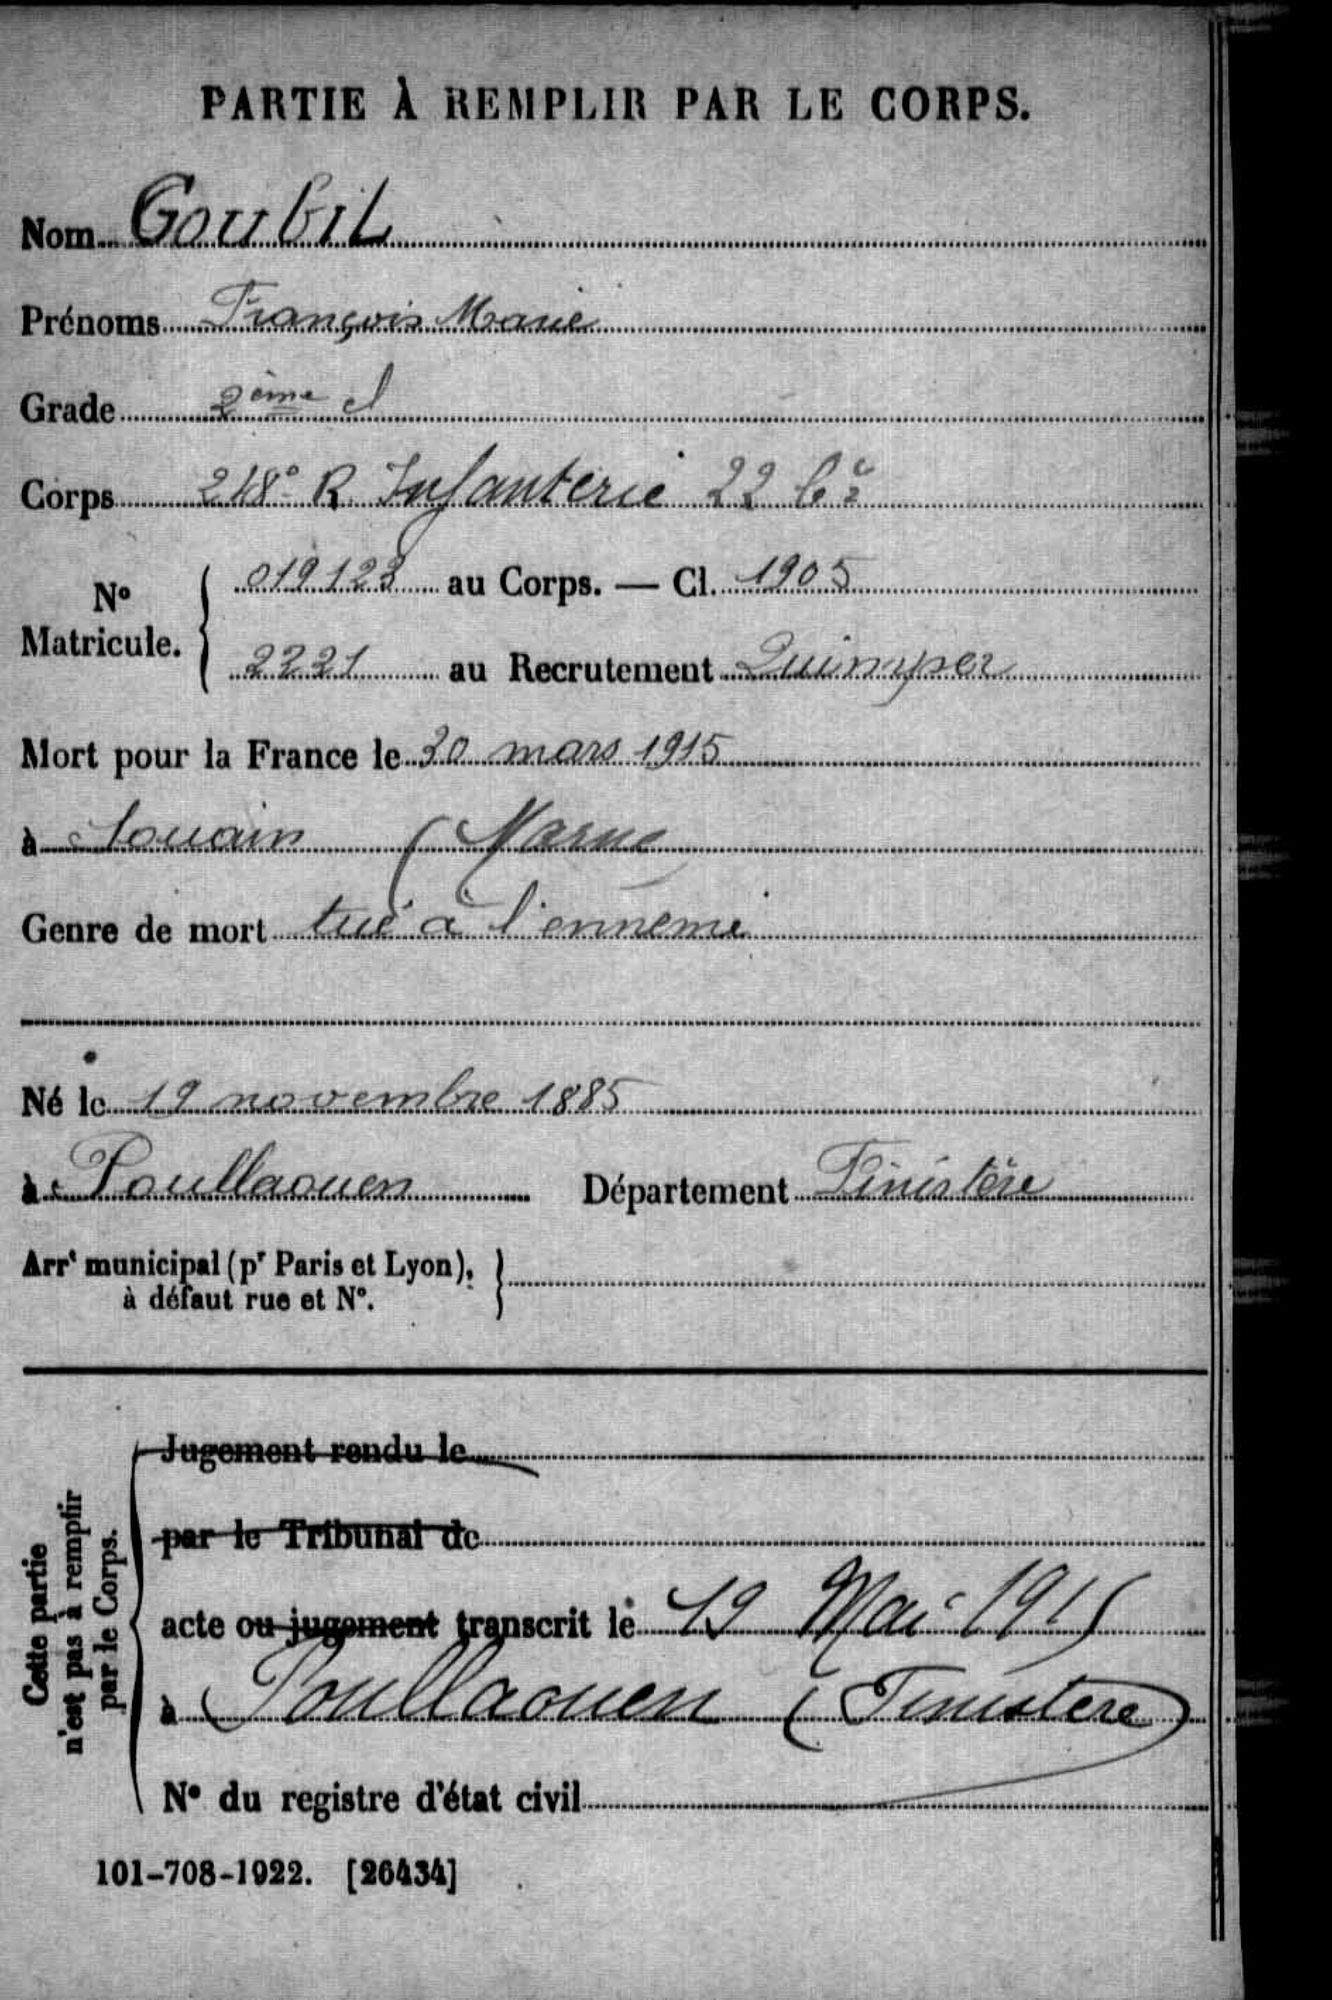 PARTIE À REMPLIR PAR LE CORPS.
Nom GoubiL
Prénoms François Marie
Grade 2ème cl
Corps 248e R. Infanterie 22 Cie
No Matricule. { 019123 au Corps. — Cl. 1905
2221 au Recrutement Quimper
Mort pour la France le 30 mars 1915
à Souain (Marne
Genre de mort tué à l'ennemi
Né le 19 novembre 1885
à Poullaouen Département Finistère
Arrt municipal (pr Paris et Lyon), }
à défaut rue et No.
Cette partie
n'est pas à remplir
par le Corps.
Jugement rendu le
par le Tribunal de
acte ou jugement transcrit le 19 Mai 1915
à Poullaouen (Finistere)
No du registre d'état civil
101-708-1922. [26434]